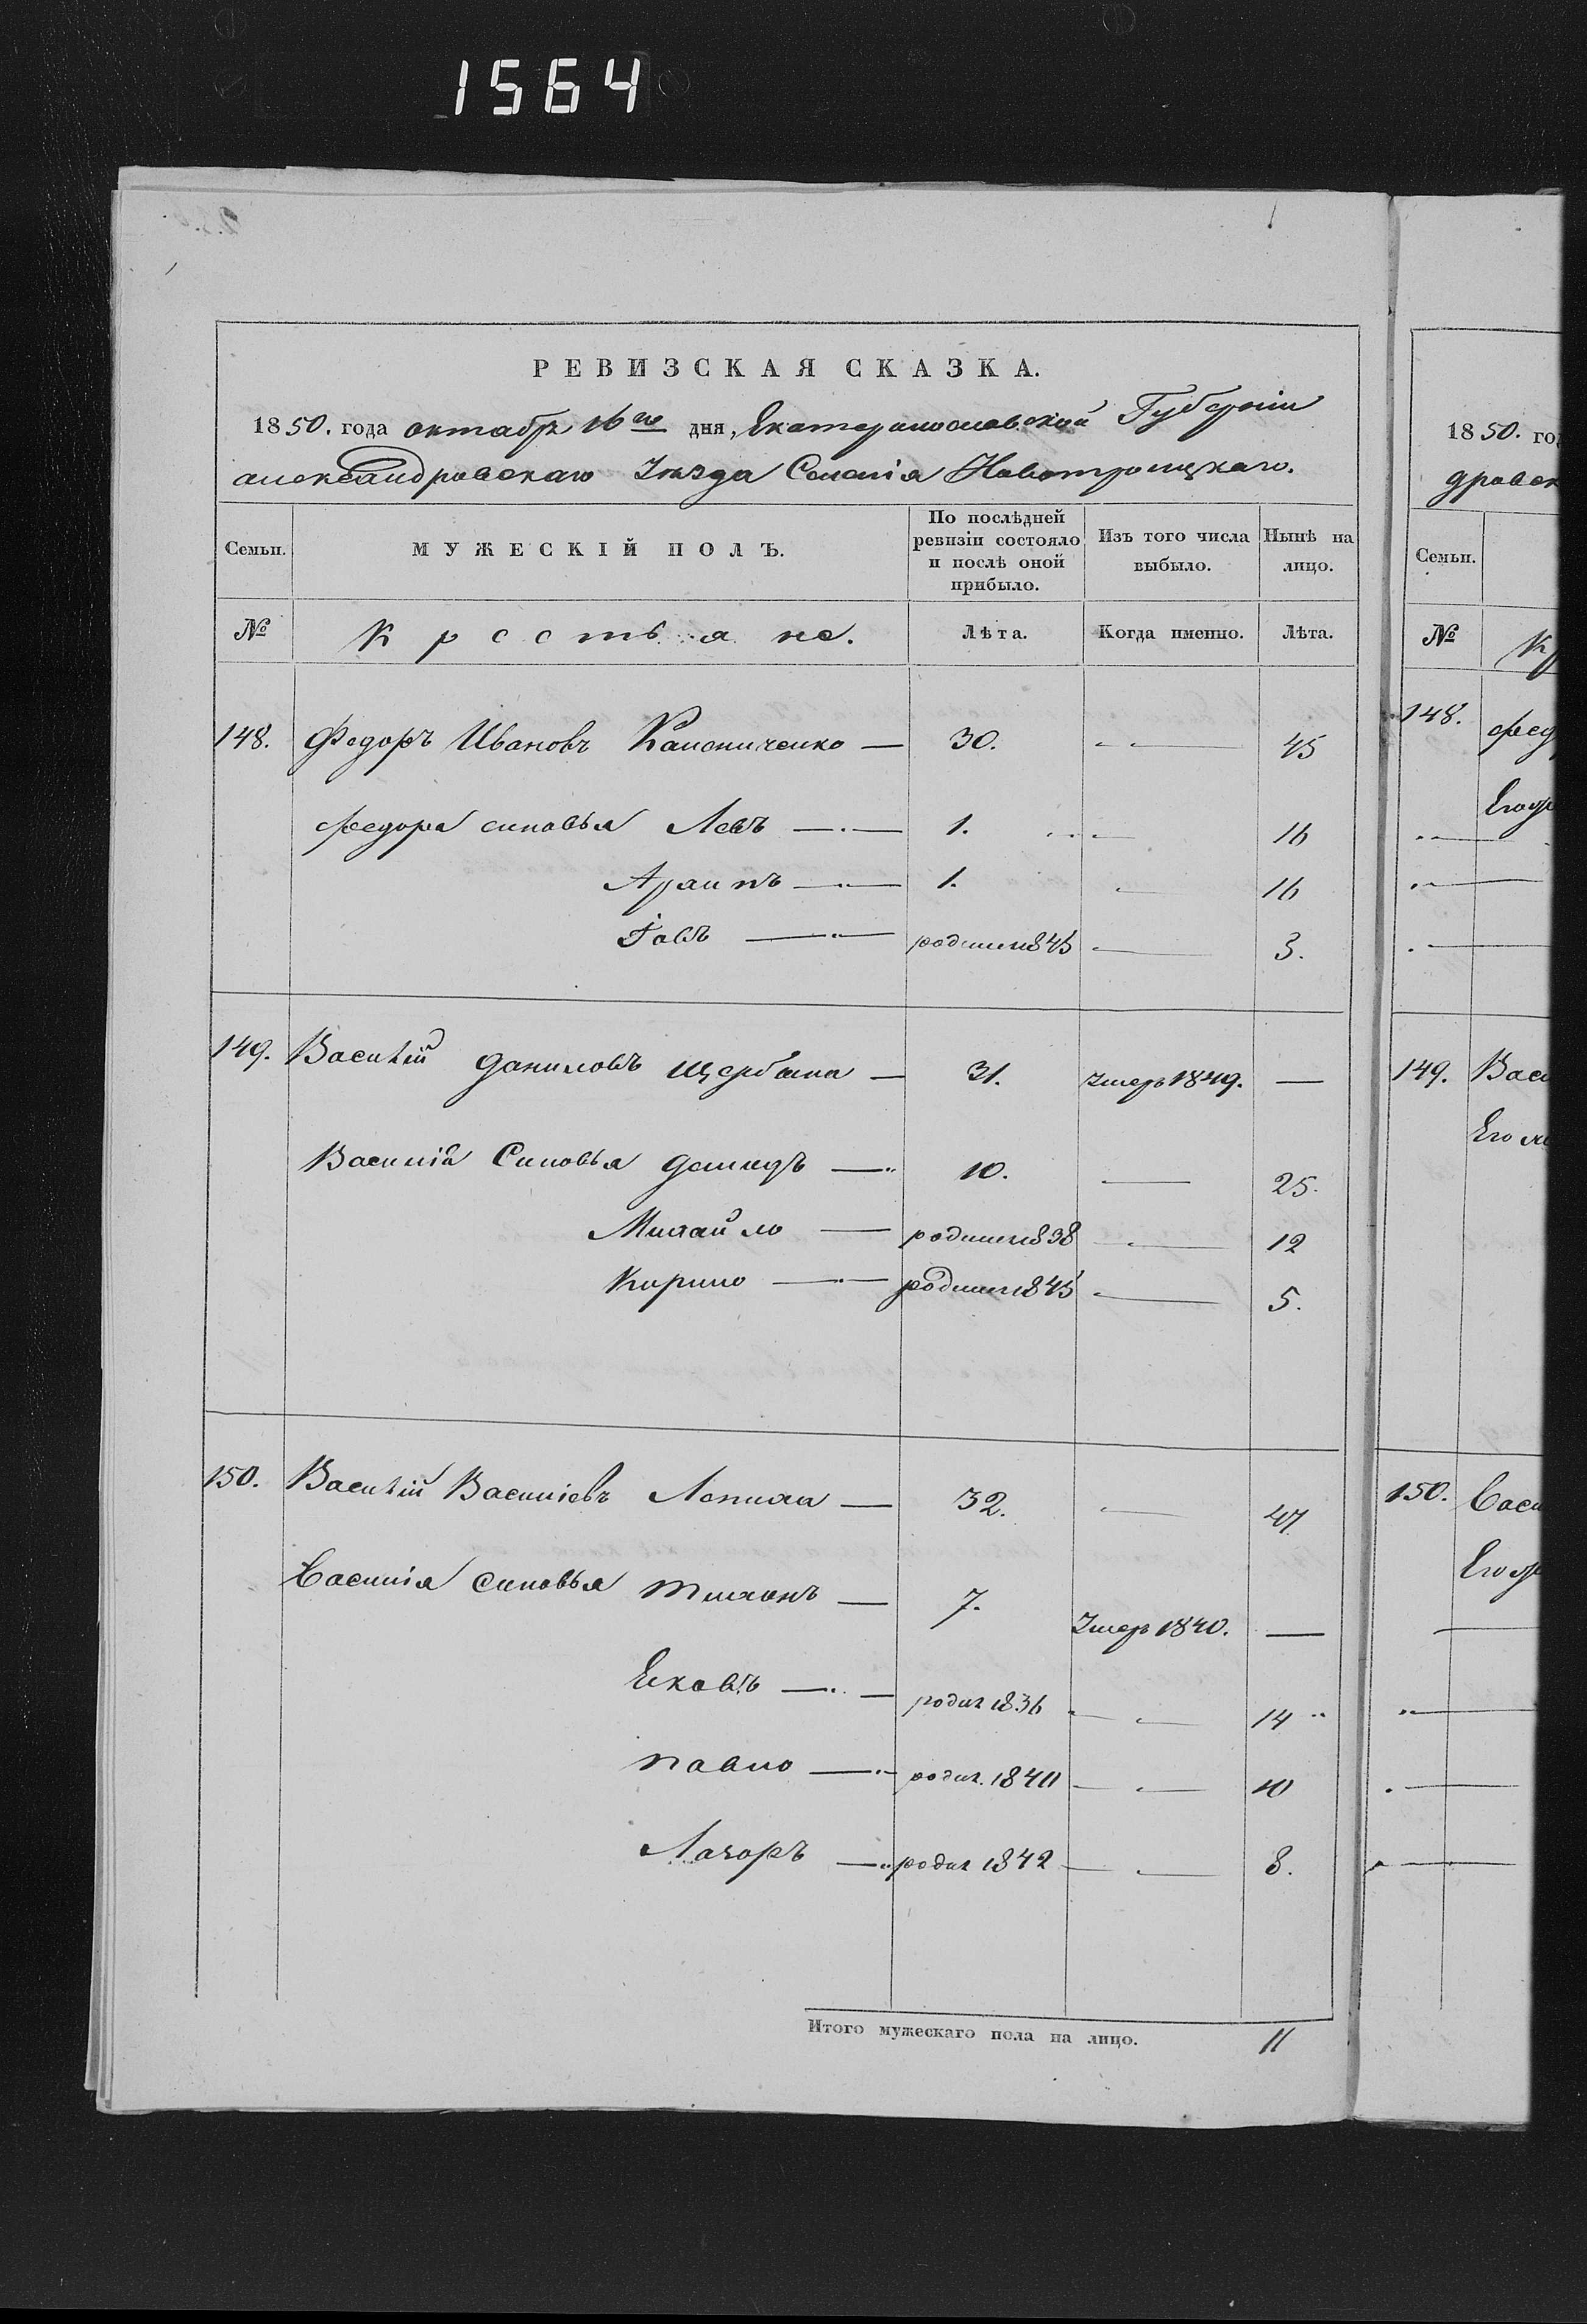 1564
РЕВИЗСКАЯ СКАЗКА.
1850. года октабр 16го дня, Екатеринославской Губерніи
александровскаго Уезда Селенія Новотроицкаго.
Семьи. МУЖЕСКІЙ ПОЛЪ. По послѣдней ревизіи состояло и послѣ оной прибыло. Изъ того числа выбыло. Нынѣ на лицо.
№ Крестьяне. Лѣта. Когда именно. Лѣта.
148. Федоръ Ивановъ 30. — 45
федора синовья Левъ — 1. — 16
1. — 16
3.
149. Василій даниловъ щербина — 31. Умеръ 1849. —
Василія Синовья демидъ — 10. — 25.
Михайло — родился 1838 — 12
Кирило — родился 1845 — 5.
150. Василій Василіевъ Лепиха — 32. — 47
Василія синовья тихонъ — 7. Умеръ 1840. —
родил 1836 — 14
павло — родил. 1840 — 10
Лазоръ — родил 1842 — 8.
Итого мужескаго пола на лицо. 11
1850. го
дровск
Семьи.
№ Кр
148. фед
Его
149. Васи
Его
150. Васи
Его